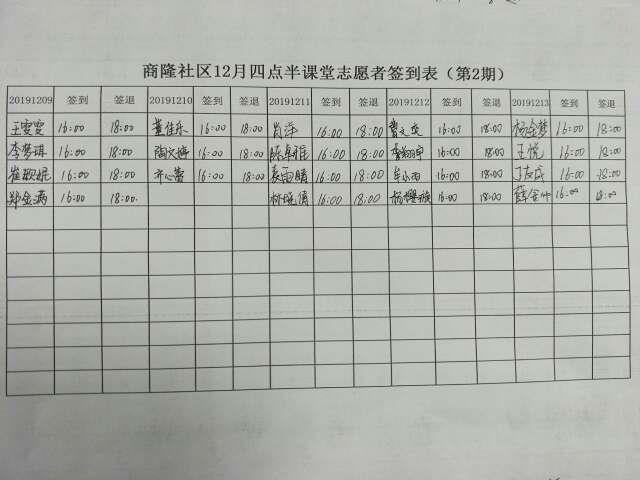 商隆社区12月四点半课堂志愿者签到表（第2期）
20191209 签到 签退 20191210 签到 签退 20191211 签到 签退 20191212 签到 签退 20191213 签到 签退
王雯雯 16:00 18:00 董佳乐 16:00 18:00 肖萍 16:00 18:00 16:00 18:00 16:00 18:00
李梦琪 16:00 18:00 陶文婷 16:00 18:00 陈卓雅 16:00 18:00 16:00 18:00 王悦 16:00 18:00
16:00 18:00 齐心蕾 16:00 18:00 袁雨晴 16:00 18:00 牟小雨 16:00 18:00 16:00 18:00
郑金满 16:00 18:00. 16:00 18:00 杨樱璇 16:00 18:00 16:00 18:00